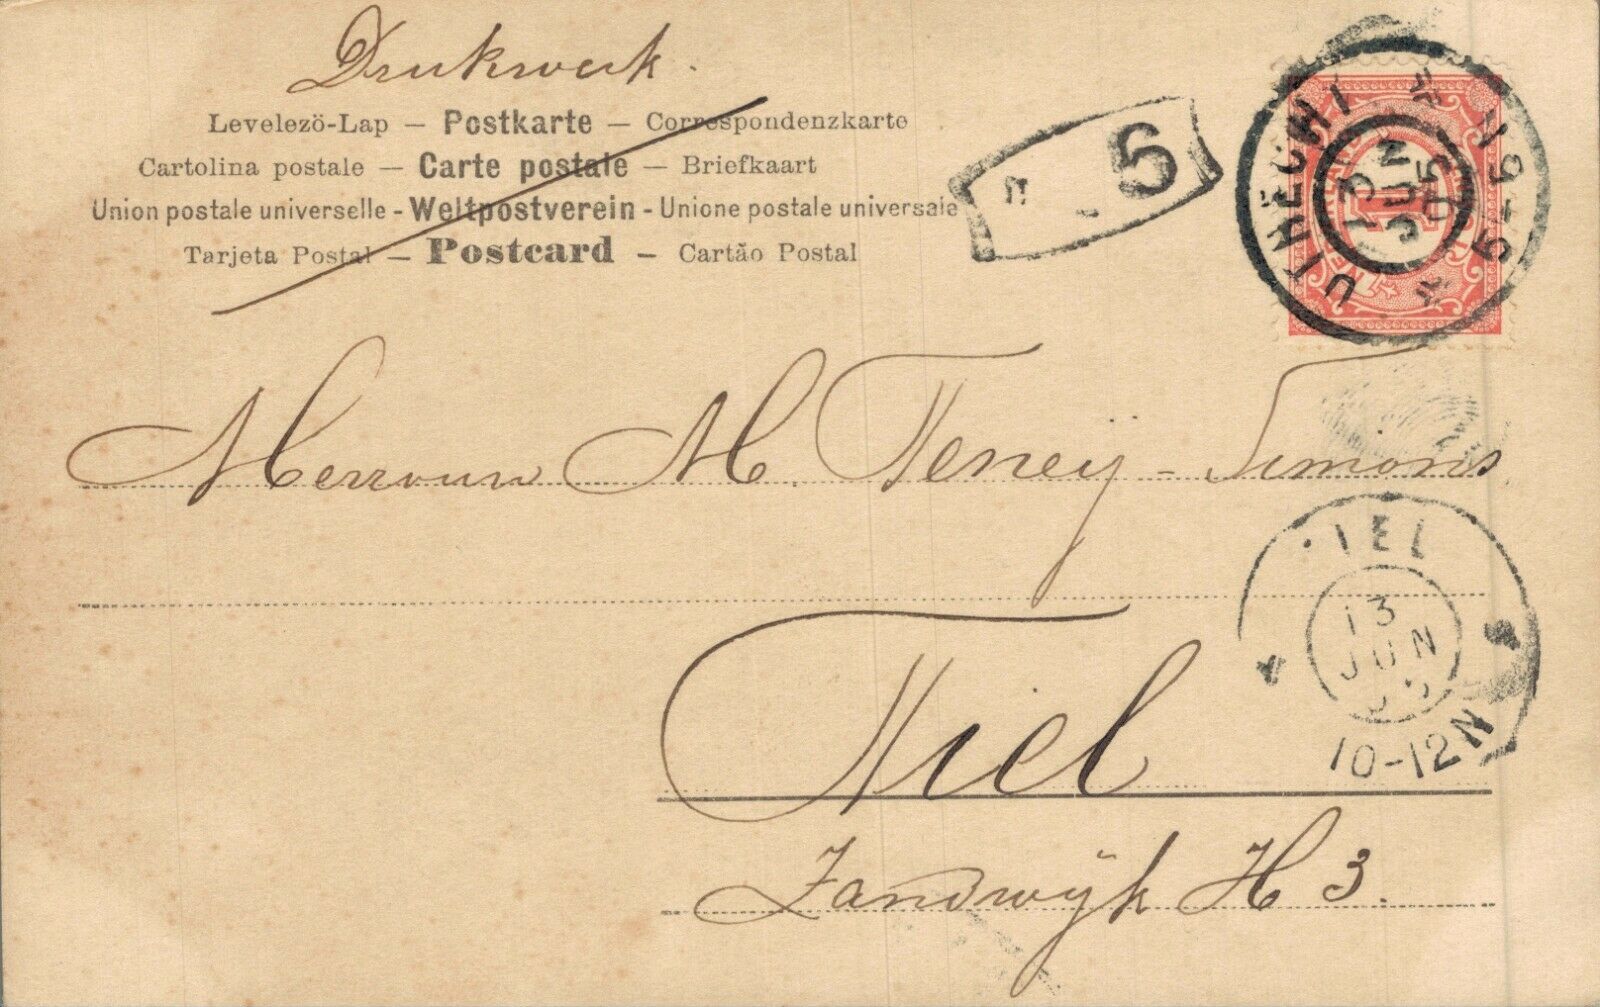 Drukwerk.
Levelezö-Lap – Postkarte – Correspondenzkarte
Cartolina postale – Carte postale – Briefkaart
Union postale universelle - Weltpostverein - Unione postale universale
Tarjeta Postal – Postcard – Cartão Postal
5
UTRECHT
13
JUN
05
5-6V
1
Mevrouw M. Teney - Simons
TIEL
13
JUN
05
10-12N
Tiel
Zandwÿk H 3.